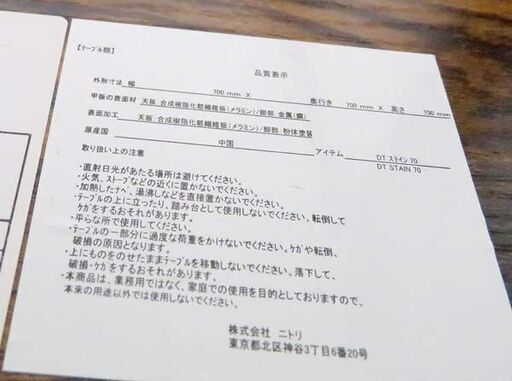 【テーブル類】
品質表示
外形寸法 幅 700 mm × 奥行き 700 mm × 高さ 700 mm
甲板の表面材 天板:合成樹脂化粧繊維板(メラミン)/脚部:金属(鋼)
表面加工 天板:合成樹脂化粧繊維板(メラミン)/脚部:粉体塗装
原産国 中国 アイテム DT ステイン 70
取り扱い上の注意 DT STAIN 70
・直射日光があたる場所は避けてください。
・火気、ストーブなどの近くに置かないでください。
・加熱したナベ、湯沸しなどを直接置かないでください。
・テーブルの上に立ったり、踏み台として使用しないでください。転倒して
ケガをするおそれがあります。
・平らな所で使用してください。
・テーブルの一部分に過度な荷重をかけないでください。ケガや転倒、
破損の原因となります。
・上にものをのせたままテーブルを移動しないでください。落下して、
破損・ケガをするおそれがあります。
・本商品は、業務用ではなく、家庭での使用を目的としておりますので、
本来の用途以外では使用しないでください。
株式会社 ニトリ
東京都北区神谷3丁目6番20号